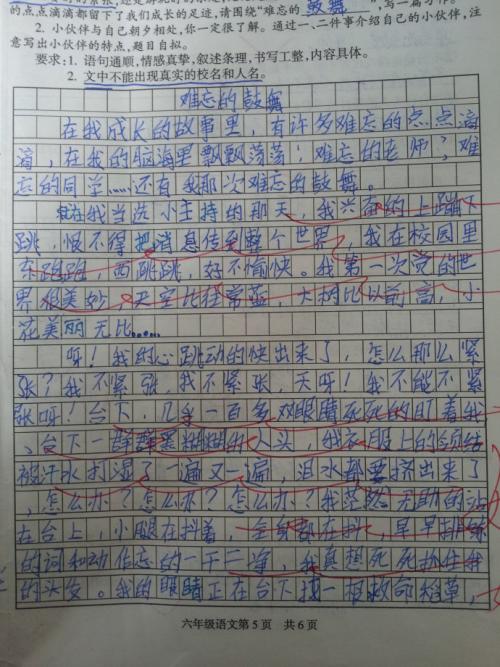 的点点滴滴都留下了我们成长的足迹,请围绕"难忘的 鼓舞 ",写一篇习作。
2. 小伙伴与自己朝夕相处,你一定很了解。通过一、二件事介绍自己的小伙伴,注
意写出小伙伴的特点,题目自拟。
要求:1. 语句通顺,情感真挚,叙述条理,书写工整,内容具体。
2. 文中不能出现真实的校名和人名。
难忘的鼓舞
在我成长的故事里,有许多难忘的点点滴
滴,在我的脑海里飘飘荡荡:难忘的老师?,难
忘的同学……还有我那次难忘的鼓舞。
在我当选小主持的那天,我兴奋的上蹦下
跳,恨不得把消息传到整个世界,我在校园里
东跑跑,西跳跳,好不愉快。我第一次觉的世
界很美妙,天空比往常蓝,大树比以前高,小
花美丽无比……
呀!我的心跳动的快出来了,怎么那么紧
张?我不紧张,我不紧张,天呀!我不能不紧
张呀!台下,几乎一百多双眼睛死死的盯着我
、台下一群群黑糊糊的人头,我衣服上的领结
被汗水打湿了一遍又一遍,泪水都要挤出来了
,怎么办?怎么办?怎么办?我茫然无助的站
在台上,小腿在抖着,全身都在抖,早早排练
的词和动作忘的一干二净,我真想死死抓住我
的头发。我的眼睛正在台下找一根救命稻草,
六年级语文第5页 共6页